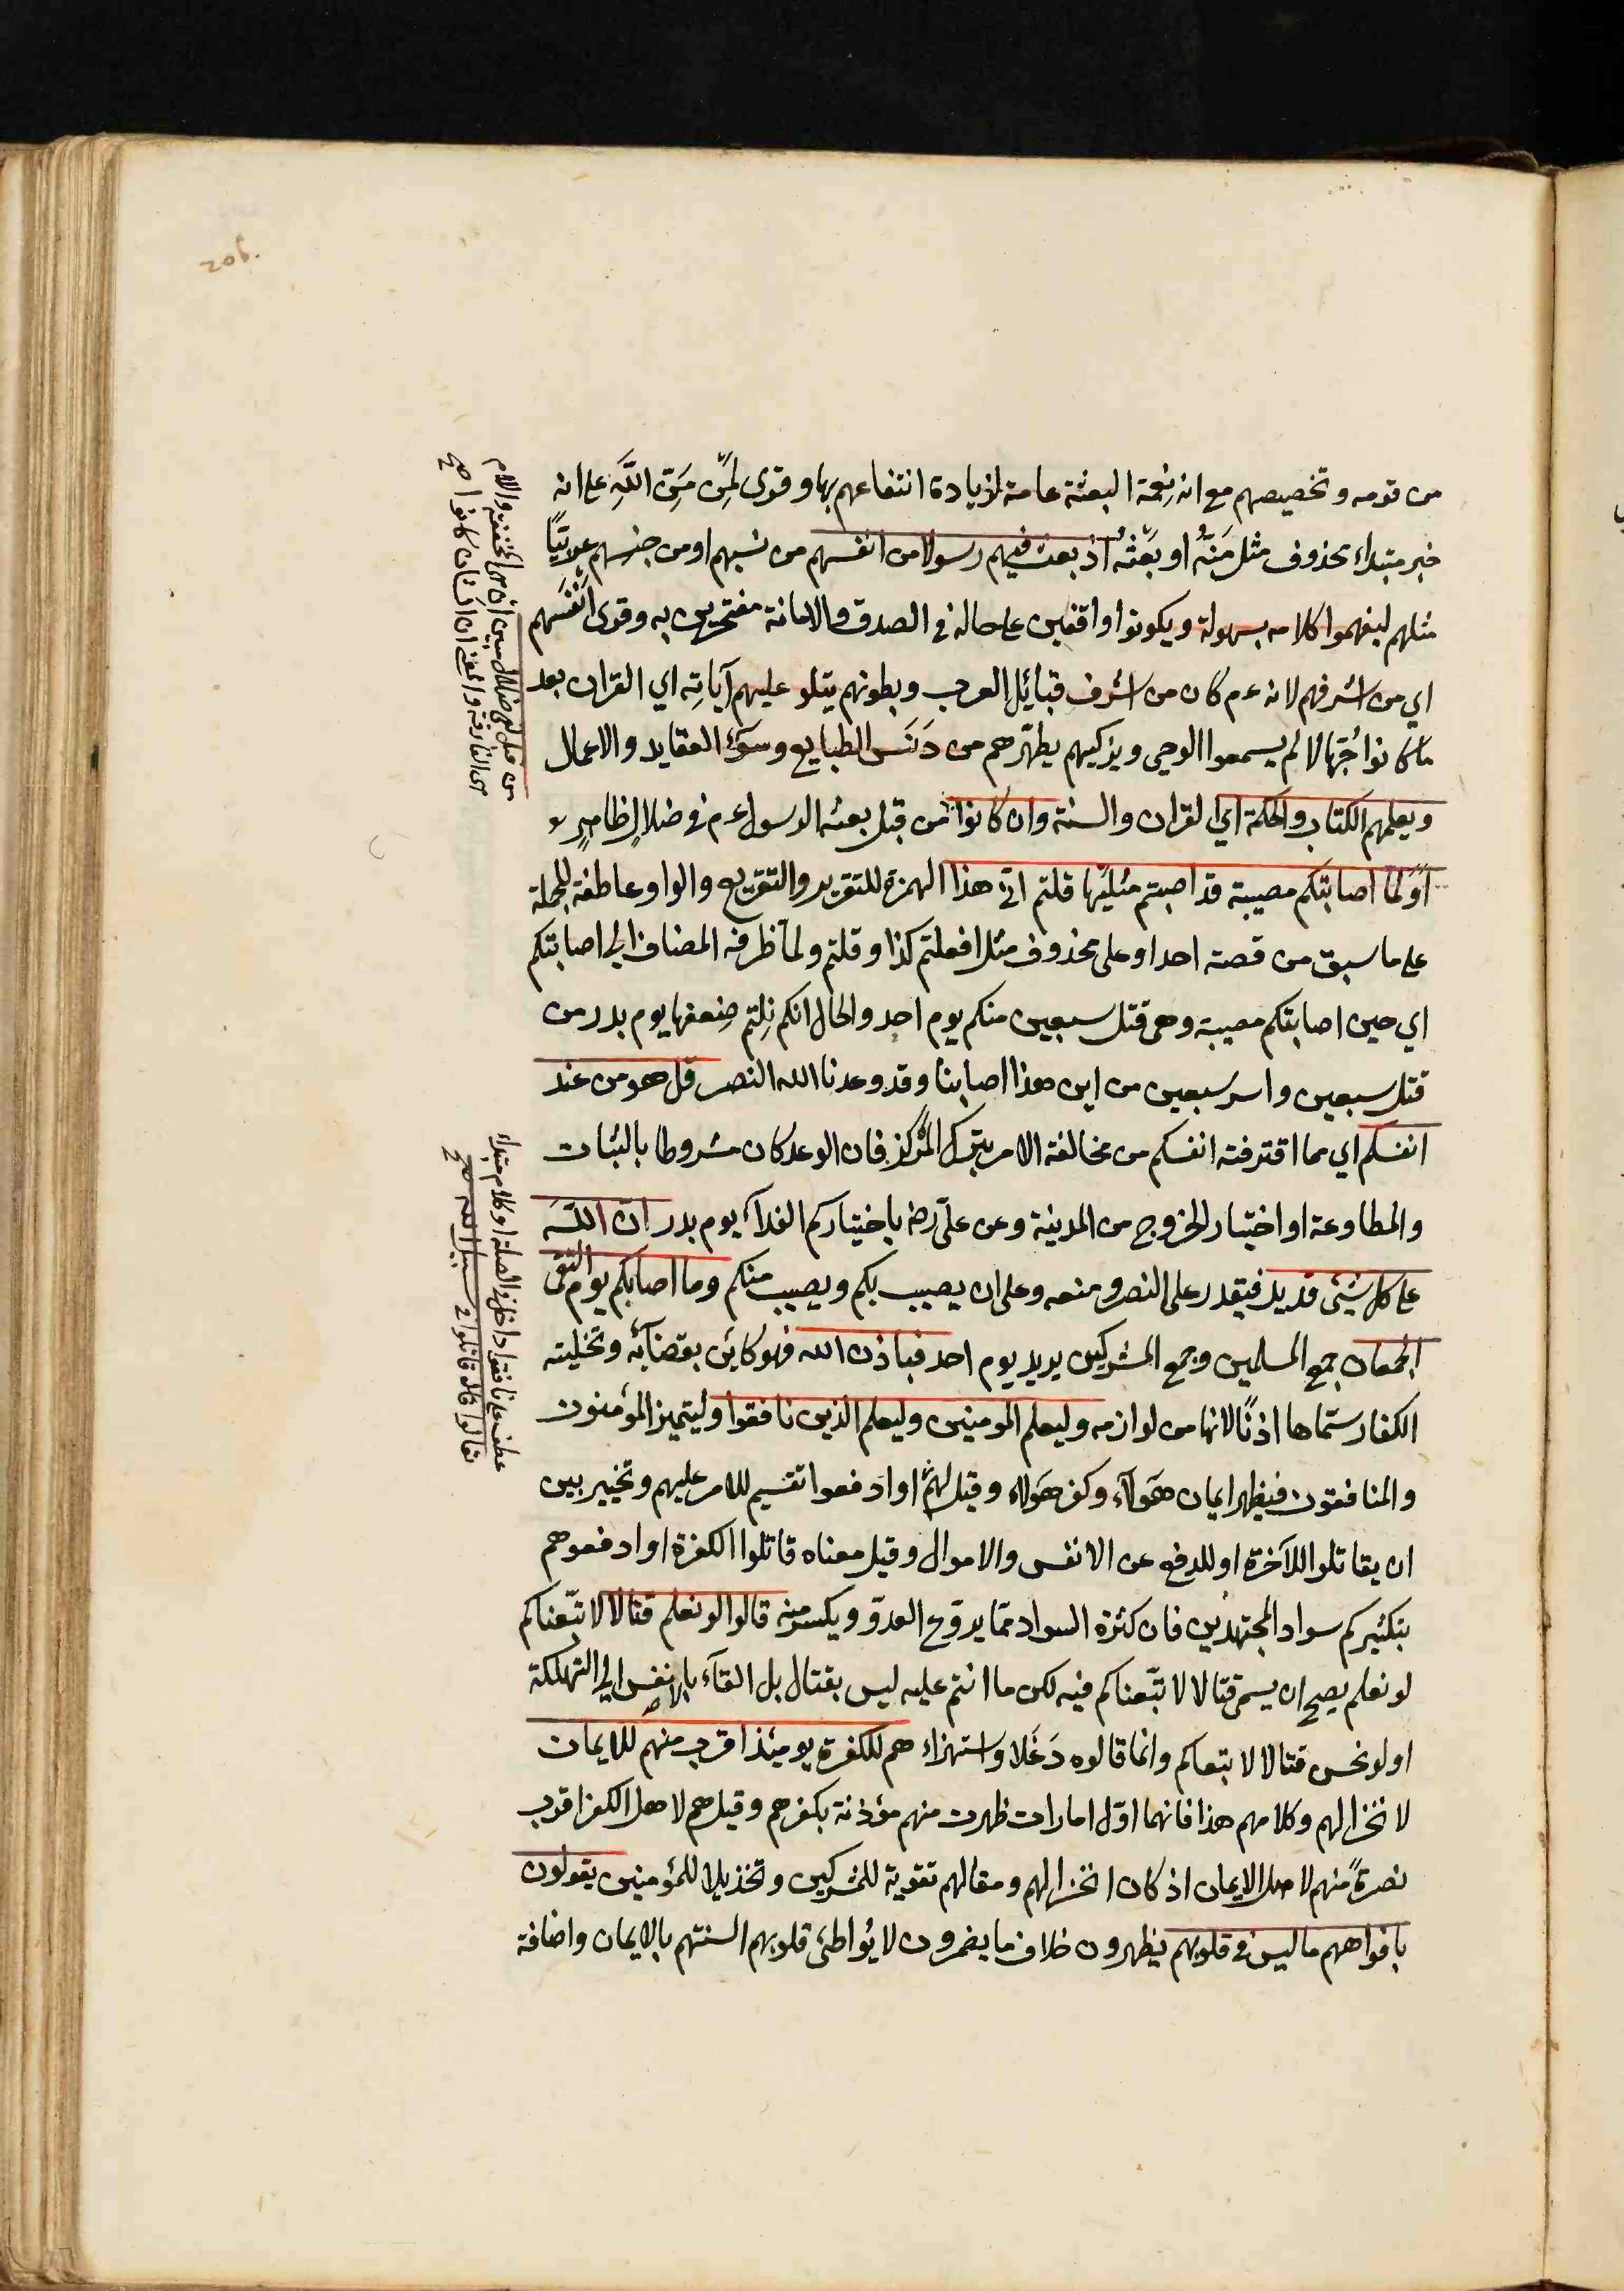 206.
من قومه وتخصيصهم مع ان نِعمة البعثة عامة لزيادة انتفاعهم بها وقرى لَمِنْ مَنِّ اللَّهِ على انه
خبر مبتداء محذوف مثل مَنُّه او بَعْثُه اذ بعث فيهم رسولا من انفسهم من نسبهم او من جنسهم عربيّاً
مثلهم ليفهموا كلامه بسهولة ويكونوا واقفين على حاله في الصدق والامانة مفتخرين به وقرى انْفَسِهم
اي من اشرفهم لانه عم كان من اشرف قبائل العرب وبطونهم يتلو عليهم آياتِه اي القران بعد
ما كانوا جُهّالا لم يسمعوا الوحي ويزكيهم يطهّرهم من دَنَس الطبايع وسوء العقايد والاعمال
ويعلمهم الكتاب والحكمة اي القران والسنة وان كانوا من قبل بعثه الرسول عم في ضلال ظاهرٍ
اَوَلمّا اصابتكم مصيبة قد اصبتم مثليْها قلتم انّى هذا الهمزة للتقرير والتقريع والواو عاطفة للجملة
على ما سبق من قصة احد او على محذوف مثل افعلتم كذا وقلتم ولما ظرفه المضاف الى اصابتكم
اي حين اصابتكم مصيبة وهى قتل سبعين منكم يوم احد والحال انكم نِلتم ضِعفها يوم بدر من
قتل سبعين واسر سبعين من اين هذا اصابنا وقد وعدنا الله النصر قل هو من عند
انفسكم اي مما اقترفته انفسكم من مخالفة الامر بترك المركز فان الوعد كان مشروطا بالثبات
والمطاوعة او اختيار الخروج من المدينة وعن على رض باختياركم الفدآء يوم بدر انّ اللَّه
على كل شئ قدير فيقدر على النصر ومنعه وعلى ان يصيب بكم ويصيب منكم وما اصابكم يوم التقى
الجمعان جمع المسلمين وجمع المشركين يريد يوم احد فباذن الله فهو كاين بقضآئه وتخليته
الكفار سمّاها اذنًا لانها من لوازمه وليعلم المومنين وليعلم الذين نافقوا وليتميز المؤمنون
والمنافقون فيظهر ايمان هَولآء وكفر هَولاء وقيل لهم او ادفعوا تقسيم للامر عليهم وتخيير بين
ان يقاتلوا للآخرة او للدفع عن الانفس والاموال وقيل معناه قاتلوا الكفرة او ادفعوهم
بتكثيركم سواد المجتهدين فان كثرة السواد ممّا يروّح العدوّ ويكسر منه قالوا لو نعلم قتالا لا تبّعناكم
لو نعلم يصح ان يسمى قتالا لا تبّعناكم فيه لكن ما انتم عليه ليس بقتال بل القآء بالانفس الى التهلكة
او لو نحسن قتالا لا تبعناكم وانما قالوه دَغَلا واستهزاء هم للكفرة يومئذ اقرب منهم للايمان
لانخزالهم وكلامهم هذا فانهما اوّل امارات ظهرت منهم مؤذنة بكفرهم وقيل هم لاهل الكفر اقرب
نصرةً منهم لاهل الايمان اذ كان انخزالهم ومقالهم تقوية للمشركين وتخذيلا للمؤمنين يقولون
بافواههم ما ليس فى قلوبهم يظهرون خلاف ما يضمرون لا يُواطئ قلوبهم السنتهم بالايمان واضافة
من قبل لفى ضلال مبين ان هى المخففة واللام
هى الفارقة والمعنى ان الشان كانوا صح
عطف على نافقوا داخل فى الصلة او كلام مبتداء
تعالوا قاتلوا فى سبيل الله صح